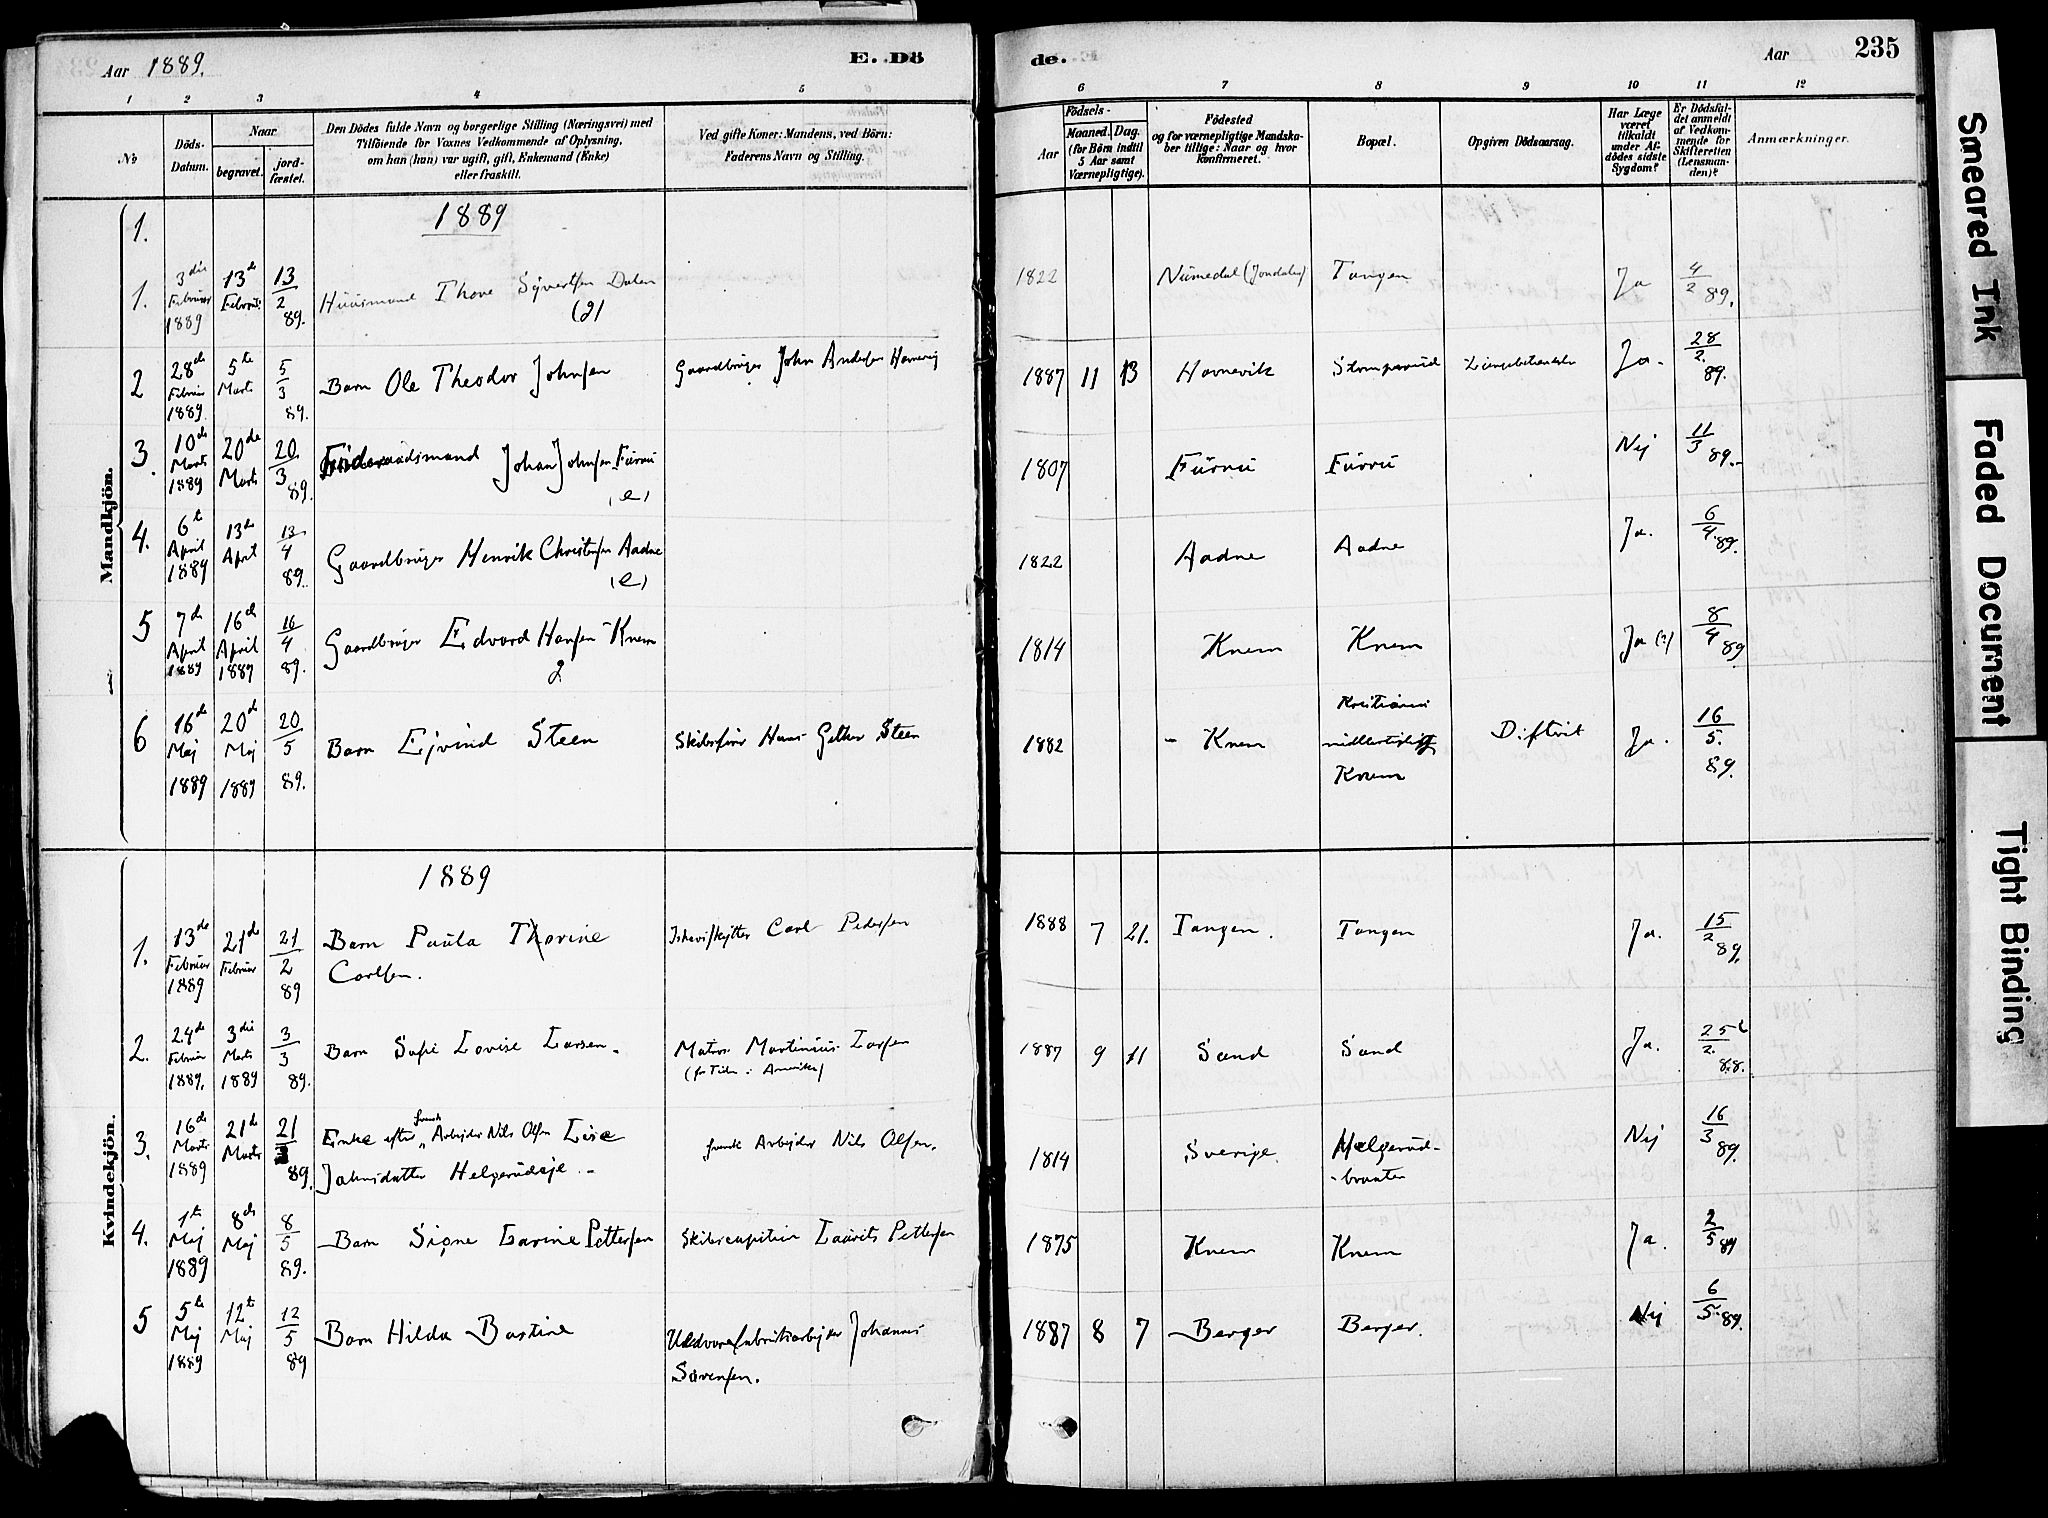 Aar 1889.
E. Dö
de.
Aar
235
1 2 3 4 5
6 7 8 9 10 11 12
No
Döds-Datum.
Naar
begravet.
jord-fæstet.
Den Dödes fulde Navn og borgerlige Stilling (Næringsvei) med
Tilföiende for Voxnes Vedkommende af Oplysning,
om han (hun) var ugift, gift, Enkemand (Enke)
eller fraskilt.
Ved gifte Koner: Mandens, ved Börn:
Faderens Navn og Stilling.
Födsels-
Aar
Maaned. Dag.
(for Börn indtil
5 Aar samt
Værnepligtige).
Födested
og for værnepligtige Mandska-
ber tillige: Naar og hvor
konfirmeret.
Bopæl.
Opgiven Dödsaarsag.
Har Læge
været
tilkaldt
under Af-
dödes sidste
Sygdom?
Er Dödsfal-
det anmeldt
af Vedkom-
mende for
Skifteretten
(Lensman-
den)?
Anmærkninger.
Mandkjön.
1.
1889
1. 3die Februar 1889 13de Februar 13/2 89. Huusmand Thore Syvertsen Dalen 1822 Numedal (Jondalen) Tangen Ja 4/2 89.
2 28de Februar 1889 5te Marts 5/3 89. Barn Ole Theodor Johnsen Gaardbruger John Andersen Havnevig 1887 11 13 Havnevik Stomperud Ja. 28/2. 89.
3. 10de Marts 1889 20de Marts 20/3 89. Föderaadsmand Johan Johnsen Furru (e) 1807 Furru Furru Nej 11/3 89.
4. 6te April 1889 13de April 13/4 89. Gaardbruger Henrik Christensen Aadne (e) 1822 Aadne Aadne Ja. 6/4 89.
5 7de April 1889 16de April 1889 16/4 89. Gaardbruger Edvard Hansen Knem 2 1814 Knem Knem Ja (?) 8/4 89
6 16de Maj 1889 20de Maj 1889 20/5 89. Barn Ejvind Steen Skibsförer Hans Steen 1882 - Knem Kristiania midlertidigt Knem Diftrit Ja. 16/5. 89.
Kvindekjön.
1889
1. 13de Februar 1889 21de Februar 21/2 89 Barn Paula Thorine Carlsen. Carl Pedersen 1888 7 21. Tangen. Tangen Ja. 15/2 89.
2. 24de Februar 1889. 3die Marts 1889 3/3 89. Barn Sofie Lovise Larsen. Matros Martinius Larsen (for Tiden i Amerika) 1887 9 11 Sand Sand Ja. 25/2. 88.
3. 16de Marts 1889 21de Marts 21 89. Enke efter svensk Arbejder Nils Olsen Lise Johnsdatter Helgerudeje svensk Arbejder Nils Olsen. 1814 Sverige. Helgerud-braaten Nej 16/3 89.
4. 1te Maj 1889 8de Maj 8/5 89. Barn Signe Larine Pettersen Skibscapitein Laurits Pettersen 1875 Knem Knem Ja. 2/5 89
5 5te Maj 1889 12te Maj 12/5 89 Barn Hilda Bastine Uldvarefabrikarbejder Johannes Sörensen. 1887 8 7 Berger Berger. Nej 6/5. 89.
Smeared Ink
Faded Document
Tight Binding